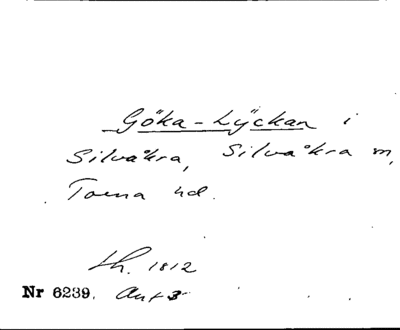 Göka-Lÿckan i
Silvåkra, Silvåkra m,
Torna hd.
Lh. 1812
Nr 6239. Ant 3